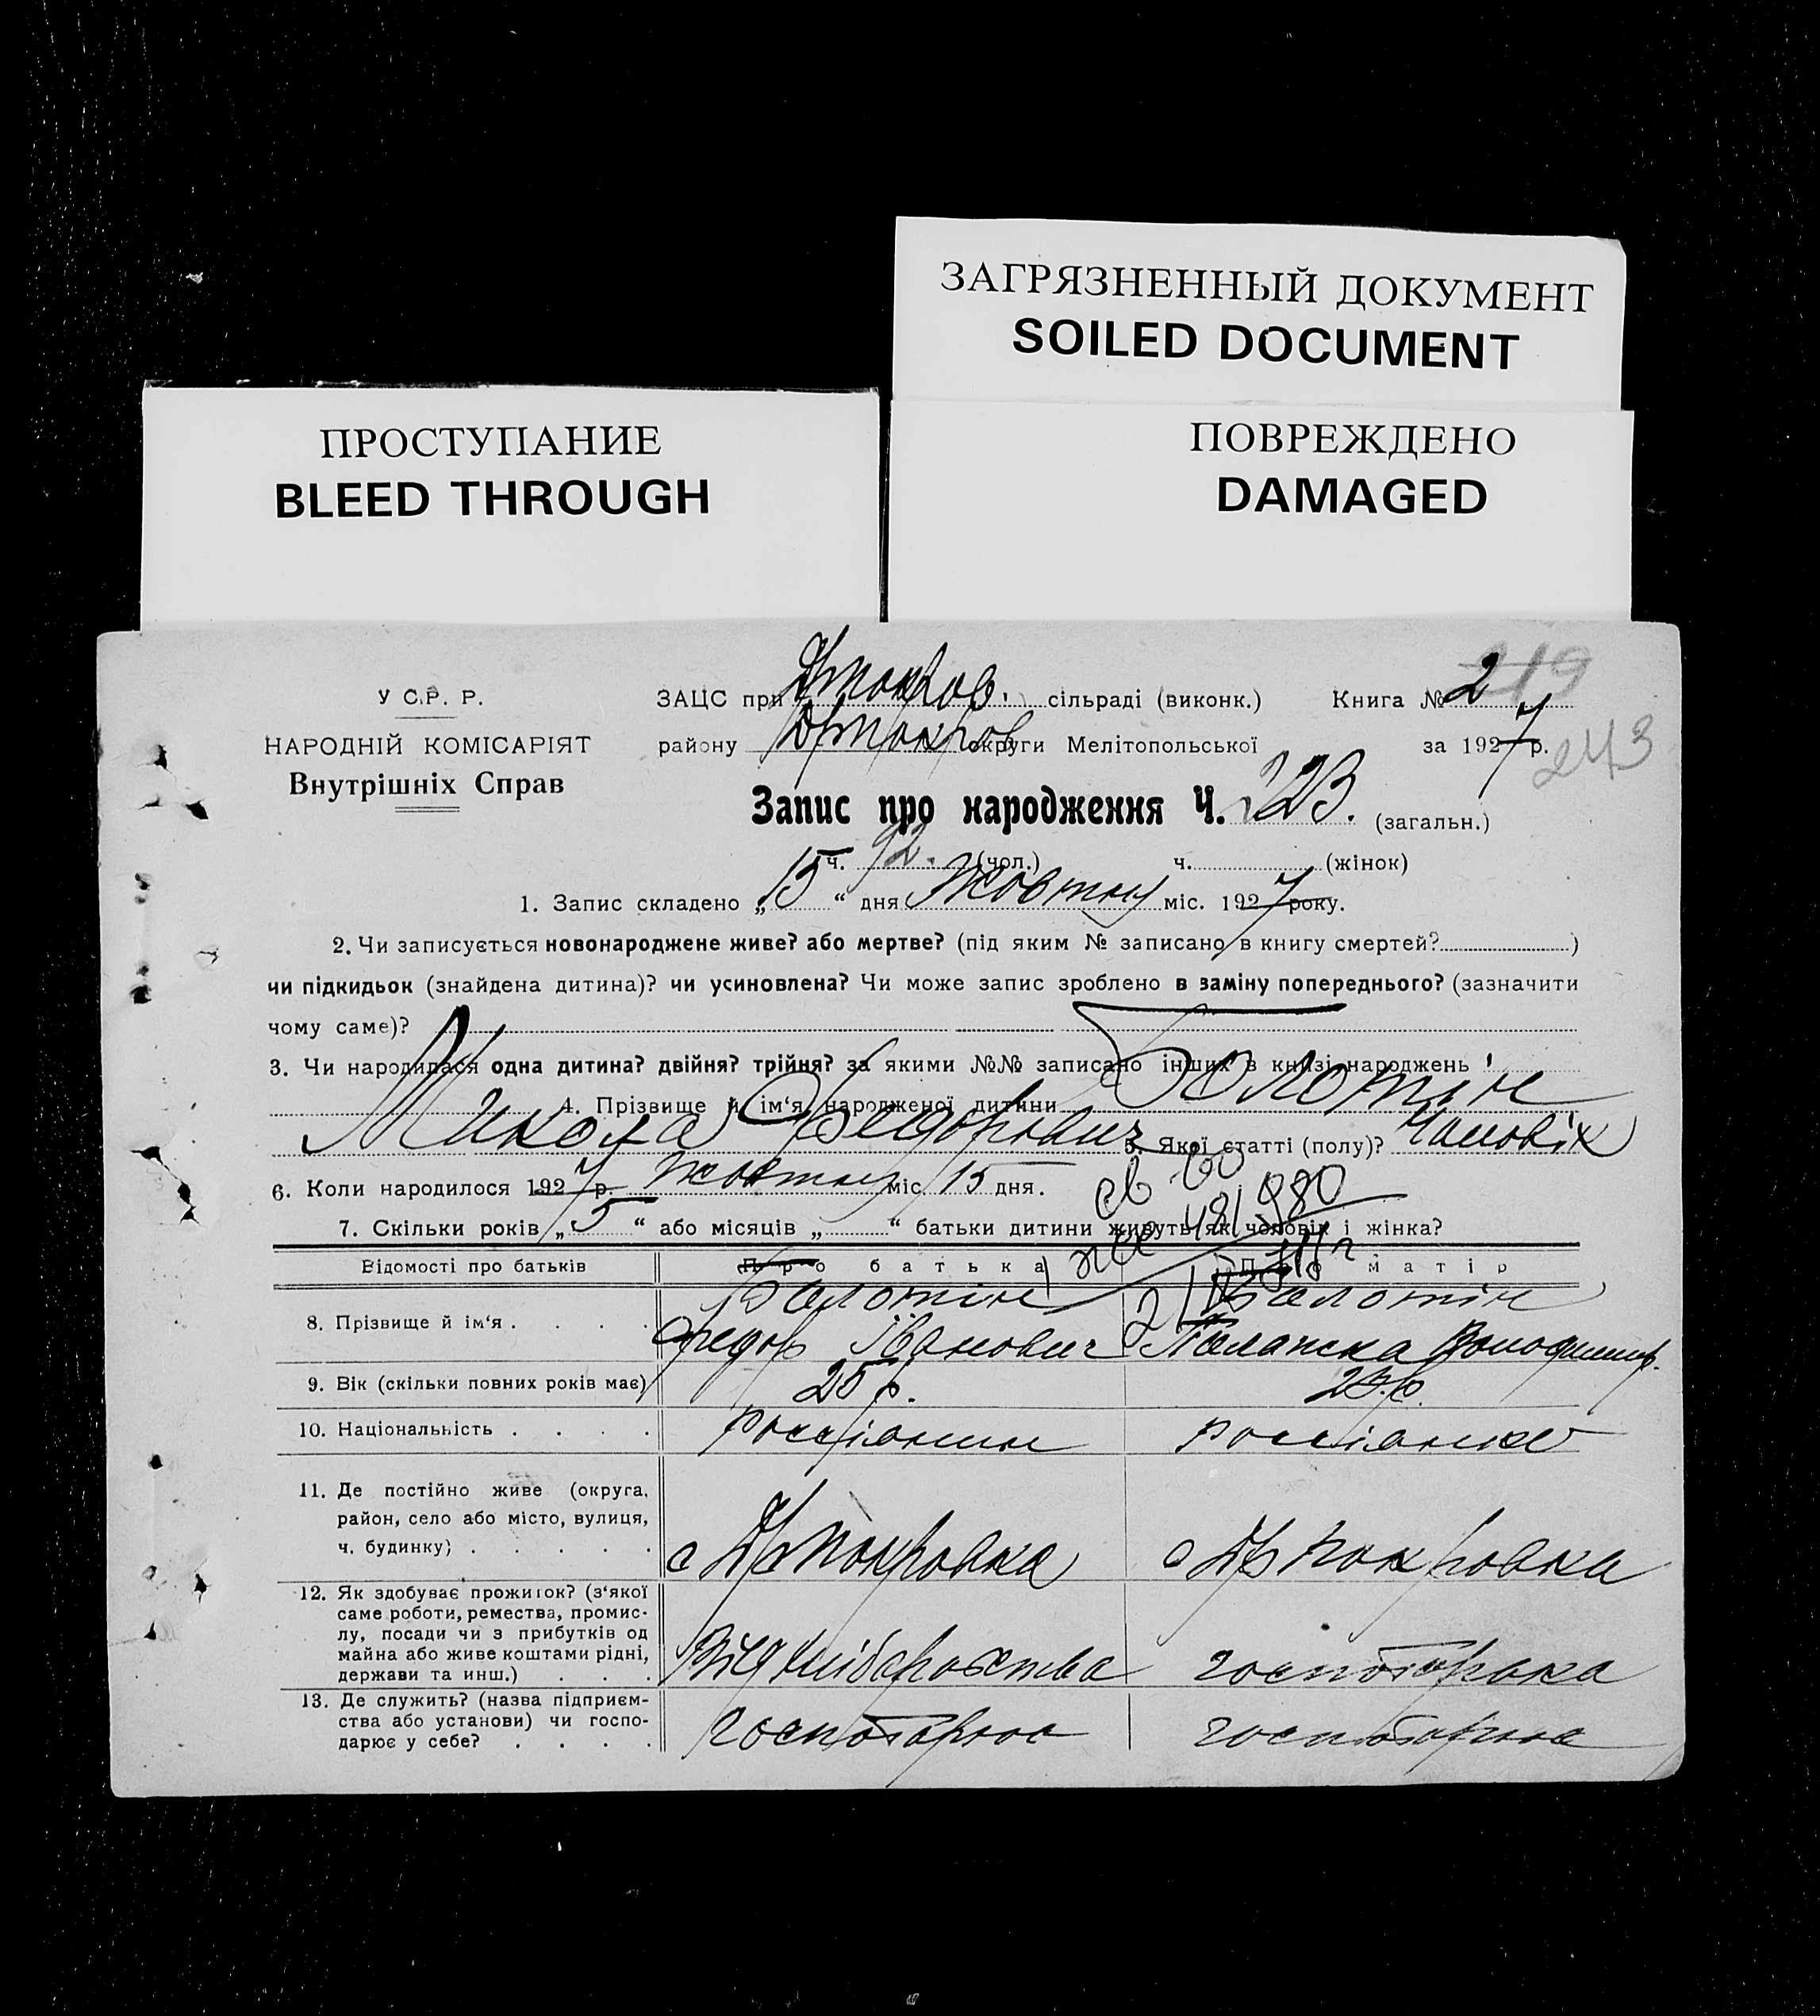 ЗАГРЯЗНЕННЫЙ ДОКУМЕНТ
SOILED DOCUMENT
ПРОСТУПАНИЕ
BLEED THROUGH
ПОВРЕЖДЕНО
DAMAGED
219
У С.Р. Р.
ЗАЦС при сільраді (виконк.) Книга № 2
НАРОДНІЙ КОМІСАРІЯТ
району округи Мелітопольської за 1927 р.
243
Внутрішніх Справ
Запис про народження Ч. 223. (загальн.)
ч. 92. (чол.) ч. (жінок)
1. Запис складено „15“ дня Жовтня міс. 1927 року.
2. Чи записується новонароджене живе? або мертве? (під яким № записано в книгу смертей? )
чи підкидьок (знайдена дитина)? чи усиновлена? Чи може запис зроблено в заміну попереднього? (зазначити
чому саме)?
3. Чи народилася одна дитина? двійня? трійня? за якими №№ записано інших в книзі народжень
4. Прізвище й ім‘я народженої дитини Болотін
Микола Федорович 5. Якої статті (полу)? Чоловік
6. Коли народилося 1927 р. Жовтня міс. 15 дня.
7. Скільки років „5“ або місяців „ “ батьки дитини живуть як чоловік і жінка?
Відомості про батьків Про батька Про матір
8. Прізвище й ім‘я . . . . Болотін Болотін
Федор Іванович Пелагея Володимир.
9. Вік (скільки повних років має) 25 р.
10. Національність . . . . россіянин россіянка
11. Де постійно живе (округа,
район, село або місто, вулиця,
ч. будинку) . . . . .
12. Як здобуває прожиток? (з‘якої
саме роботи, ремества, промис-
лу, посади чи з прибутків од
майна або живе коштами рідні,
держави та инш.) . . .
13. Де служить? (назва підприєм-
ства або установи) чи госпо-
дарює у себе? . . . .